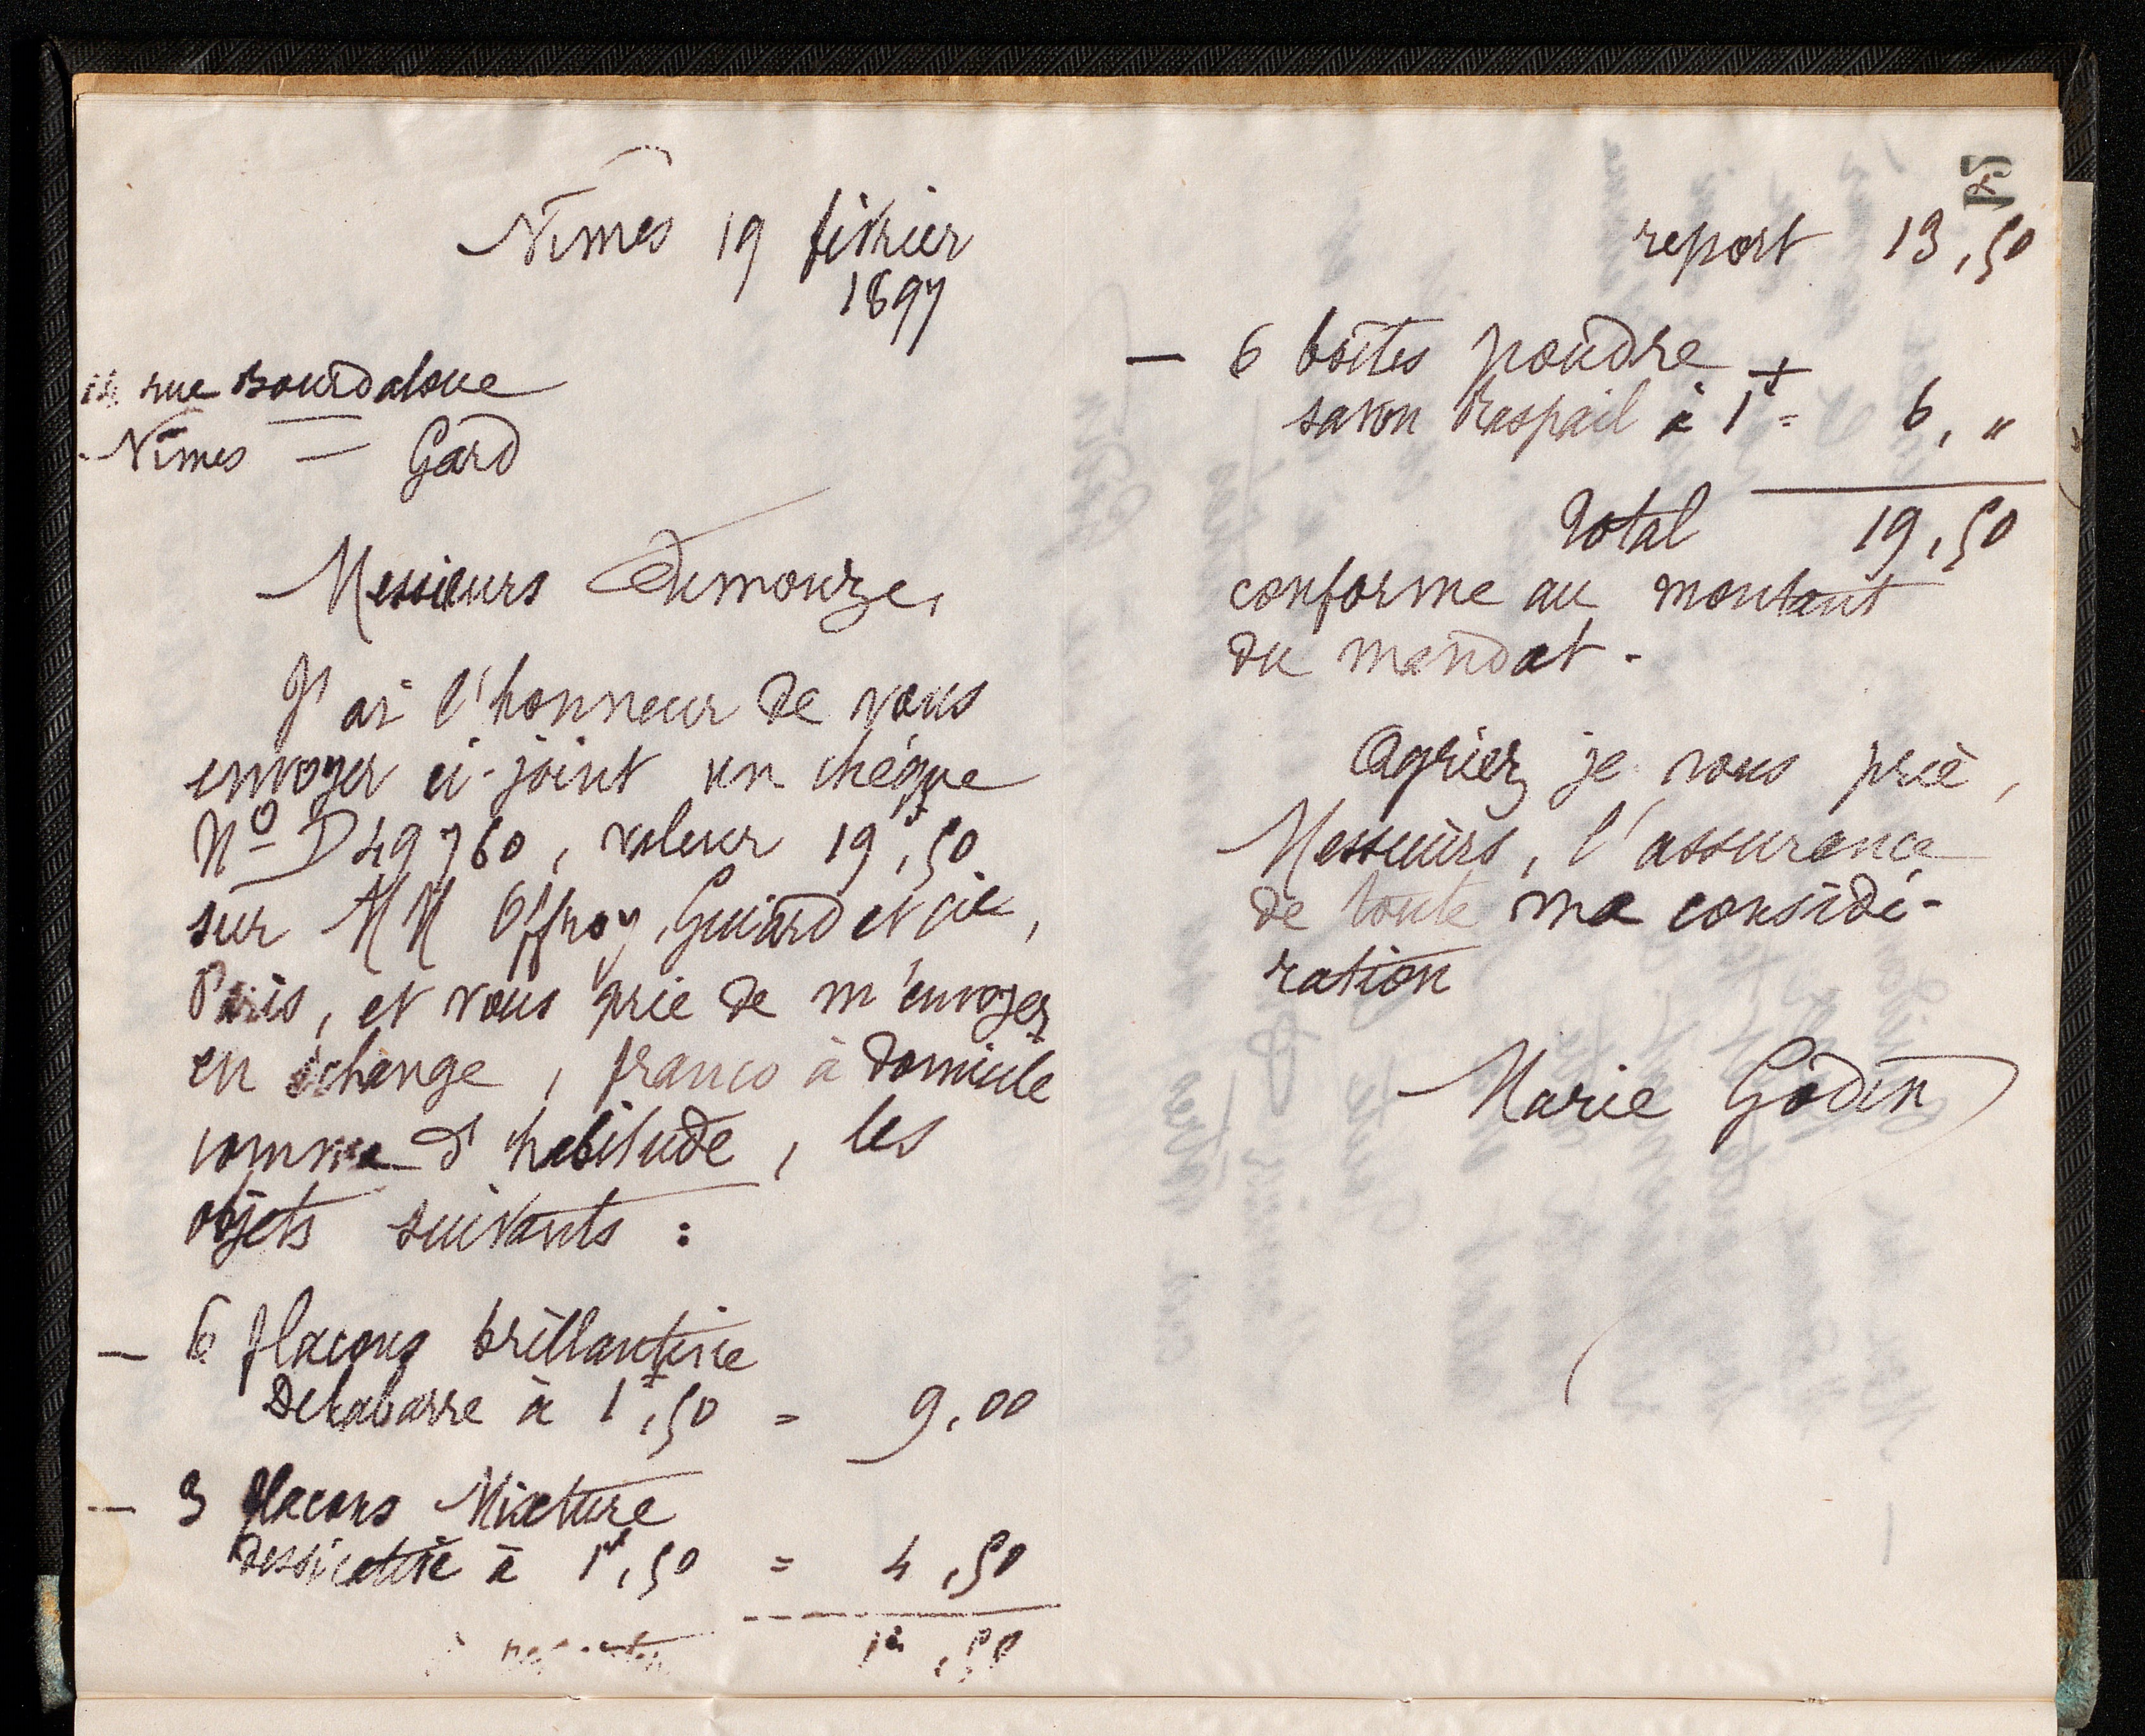 Nîmes 19 février
1897
14 rue Bourdaloue
Nîmes — Gard
Messieurs
J'ai l'honneur de vous
envoyer ci-joint un chèque
Nº D 49760, valeur 19f,50
sur MM Offroy, Guiard et cie,
Paris, et vous prie de m'envoyer
en échange, franco à domicile
comme d'habitude, les
objets suivants :
— 6 flacons brillantine
Delabarre à 1f,50 = 9,00
— 3 flacons Mixture
dessicative à 1f,50 = 4,50
à reporter 13,50
155
report 13,50
— 6 boîtes poudre
savon Raspail à 1f = 6, "
Total 19,50
conforme au montant
du mandat.
Agréez je vous prie,
Messieurs, l'assurance
de toute ma considé-
ration
Marie Godin